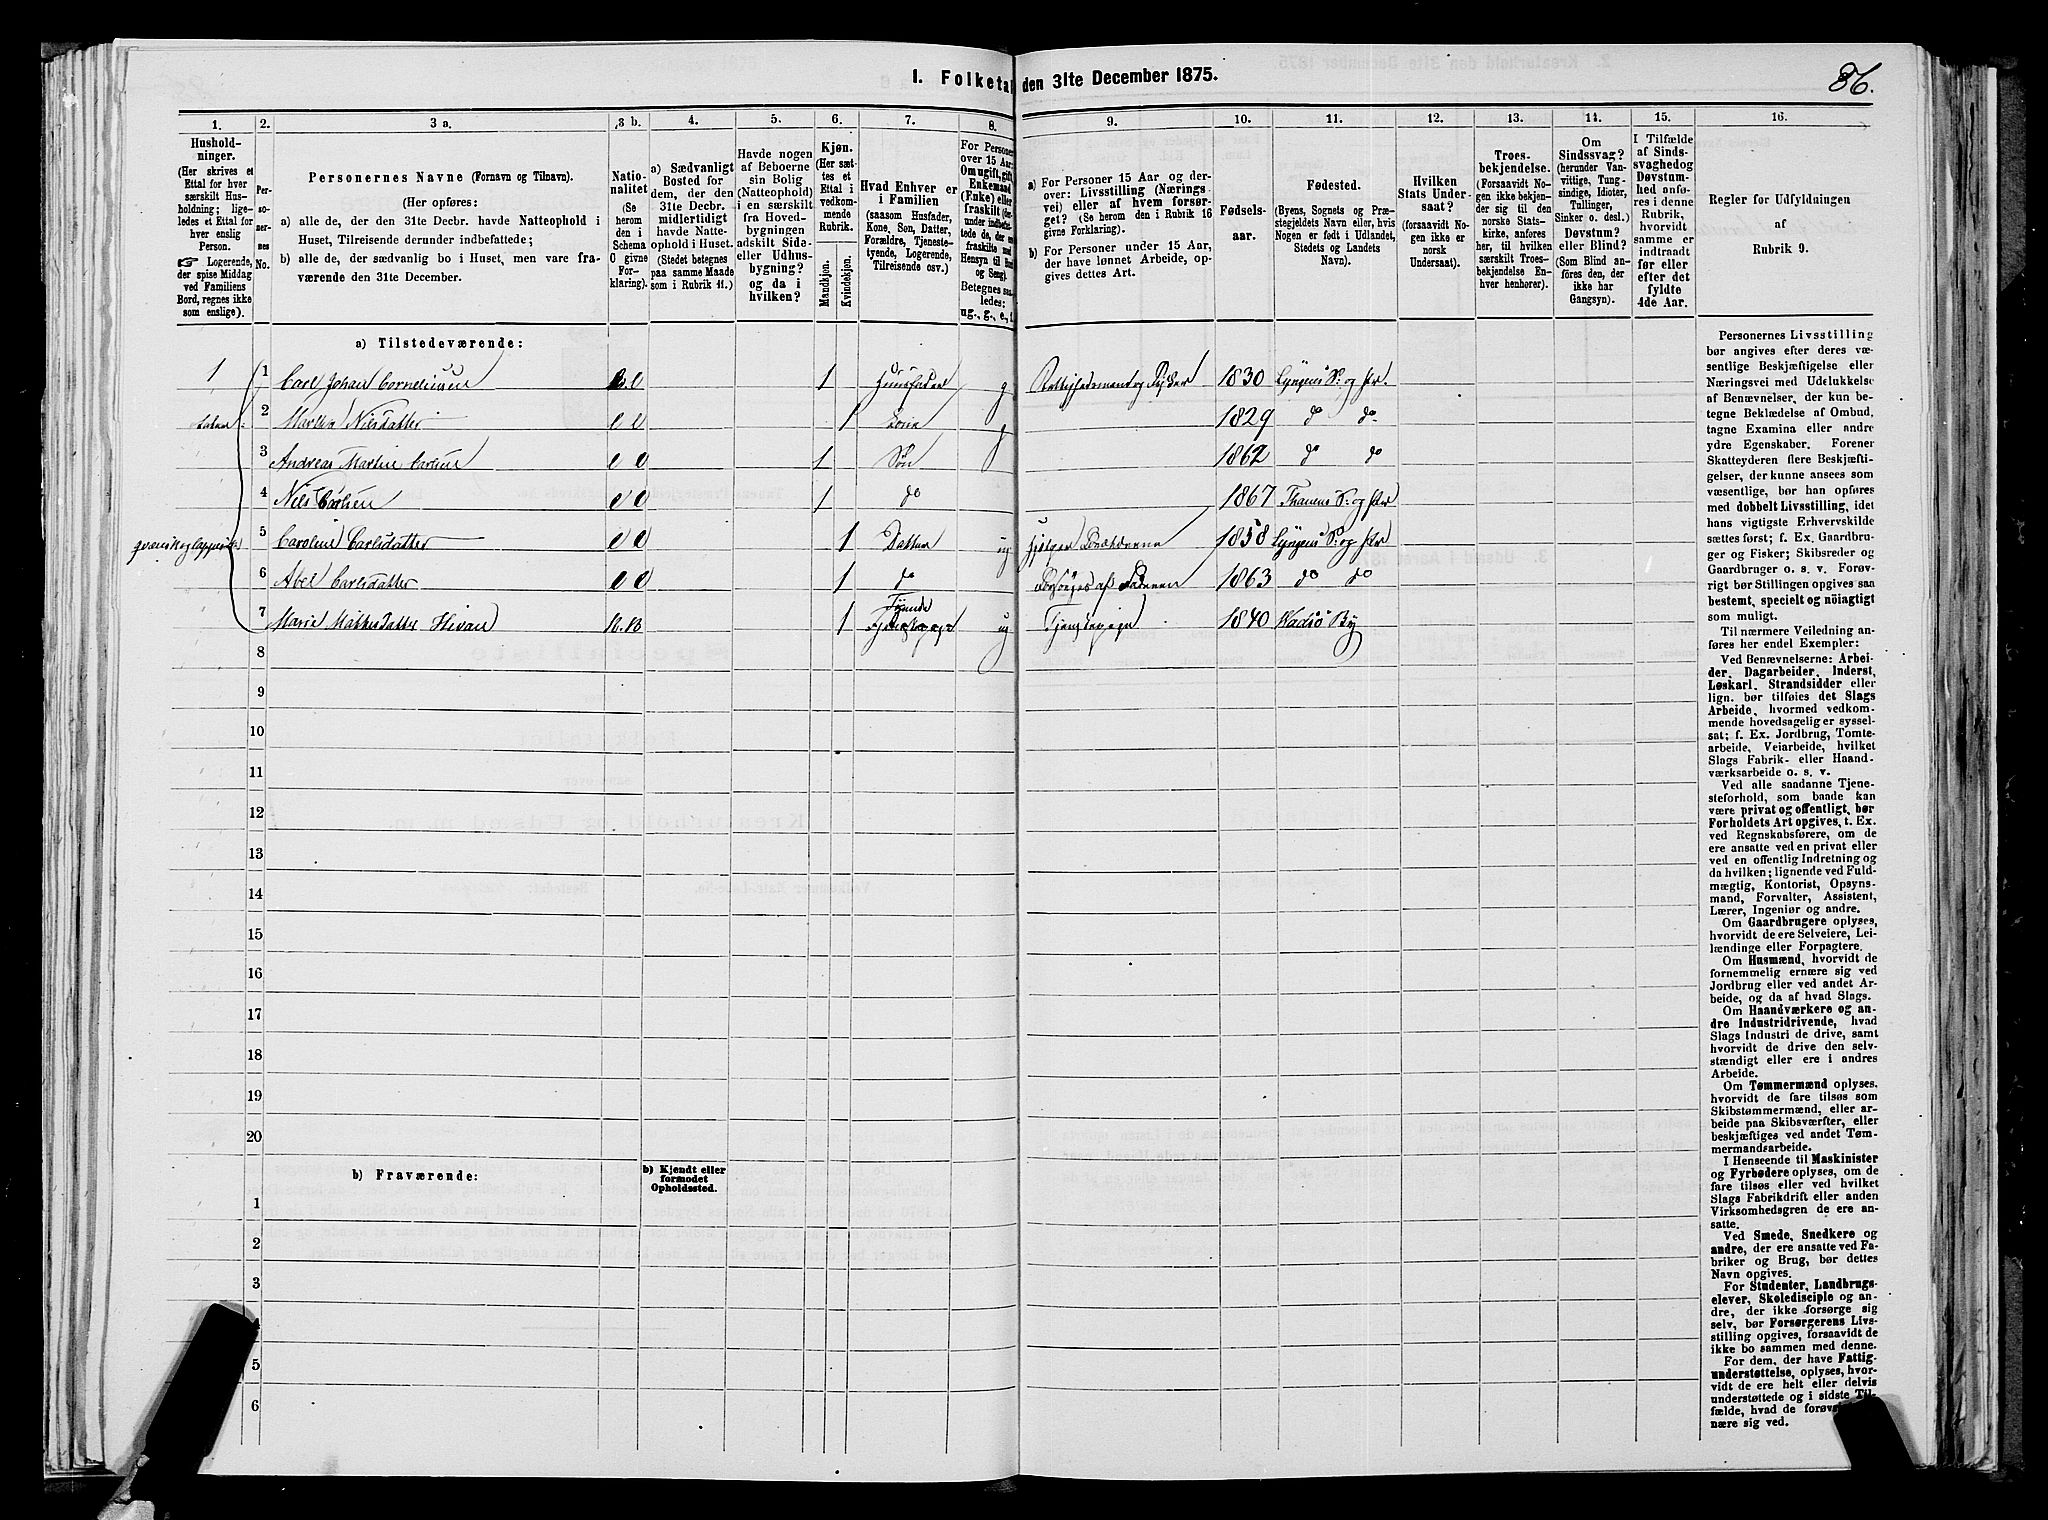 1. Folketal den 31te December 1875.
86.
1.
Hushold-
ninger.
(Her skrives et
Ettal for hver
særskilt Hus-
holdning; lige-
ledes et Ettal for
hver enslig
Person.
☞ Logerende,
der spise Middag
ved Familiens
Bord, regnes ikke
som enslige).
2.
Per-
so-
ner-
nes
No.
3 a.
Personernes Navne (Fornavn og Tilnavn).
(Her opføres:
a) alle de, der den 31te Decbr. havde Natteophold i
Huset, Tilreisende derunder indbefattede;
b) alle de, der sædvanlig bo i Huset, men vare fra-
værende den 31te December.
3 b.
Natio-
nalitet
(Se
herom
den i
Schema
C givne
For-
klaring).
4.
a) Sædvanligt
Bosted for
dem, der den
31te Decbr.
midlertidigt
havde Natte-
ophold i Huset.
(Stedet betegnes
paa samme Maade
som i Rubrik 11.)
5.
Havde nogen
af Beboerne
sin Bolig
(Natteophold)
i en særskilt
fra Hoved-
bygningen
adskilt Side-
eller Udhus-
bygning?
og da i
hvilken?
6.
Kjøn.
(Her sæt-
tes et
Ettal i
vedkom-
mende
Rubrik.
Mandkjøn.
Kvindekjøn.
7.
Hvad Enhver er
i Familien
(saasom Husfader,
Kone, Søn, Datter,
Forældre, Tjeneste-
tyende, Logerende,
Tilreisende osv.)
8.
For Personer
over 15 Aar:
Om ugift, gift,
Enkemand
(Enke) eller
fraskilt
Betegnes saa-
ledes:
ug., g., e., f.
9.
a) For Personer 15 Aar og der-
over: Livsstilling (Nærings-
vei) eller af hvem forsør-
get? (Se herom den i Rubrik 16
givne Forklaring).
b) For Personer under 15 Aar,
der have lønnet Arbeide, op-
gives dettes Art.
10.
Fødsels-
aar.
11.
Fødested.
(Byens, Sognets og Præ-
stegjeldets Navn eller, hvis
Nogen er født i Udlandet,
Stedets og Landets
Navn).
12.
Hvilken
Stats Under-
saat?
(forsaavidt No-
gen ikke er
norsk
Undersaat).
13.
Troes-
bekjendelse.
(Forsaavidt No-
gen ikke bekjen-
der sig til den
norske Stats-
kirke, anføres
her, til hvilken
særskilt Troes-
bekjendelse En-
hver henhører).
14.
Om
Sindssvag?
(herunder Van-
vittige, Tung-
sindige, Idioter,
Tullinger,
Sinker o. desl.)
Døvstum?
eller Blind?
(Som Blind an-
føres den, der
ikke har
Gangsyn).
15.
I Tilfælde
af Sinds-
svaghed og
Døvstum-
hed anfø-
res i denne
Rubrik,
hvorvidt
samme er
indtraadt
før eller
efter det
fyldte
4de Aar.
16.
Regler for Udfyldningen
af
Rubrik 9.
a) Tilstedeværende:
1 1 Carl Johan Corneliussen 1 Huusfader g 1830 Lyngens S. og Pr.
2 Nilsdatter 1 Kone g 1829 do do
3 Andreas Martin Carlsen 1 Søn 1862 do do
4 Nils Carlsen 1 do 1867 Tranens S. og Pr
5 Caroline Carlsdatter 1 Datter ug hjelper Forældrene 1858 Lyngens S. og Pr
6 Abel Carlsdatter 1 do Forsørges af Faderen 1863 do do
7 Marie Mathisdatter 1 Tjenestepige ug Tjenestepige 1840 Vadsø By
8
9
10
11
12
13
14
15
16
17
18
19
20
b) Fraværende:
b) Kjendt eller
formodet
Opholdssted.
1
2
3
5
6
Personernes Livsstilling
bør angives efter deres væ-
sentlige Beskjæftigelse eller
Næringsvei med Udelukkelse
af Benævnelser, der kun be-
tegne Beklædelse af Ombud,
tagne Examina eller andre
ydre Egenskaber. Forener
Skatteyderen flere Beskjæfti-
gelser, der kunne ansees som
væsentlige, bør han opføres
med dobbelt Livsstilling, idet
hans vigtigste Erhvervskilde
sættes først; f. Ex. Gaardbru-
ger og Fisker; Skibsreder og
Gaardbruger o. s. v. Forøv-
rigt bør Stillingen opgives saa
bestemt, specielt og nöiagtigt
som muligt.
Til nærmere Veiledning an-
føres her endel Exempler:
Ved Benævnelserne: Arbei-
der, Dagarbeider, Inderst,
Løskarl, Strandsidder eller
lign. bør tilføies det Slags
Arbeide, hvormed vedkom-
mende hovedsagelig er syssel-
sat; f. Ex. Jordbrug, Tomte-
arbeide, Veiarbeide, hvilket
Slags Fabrik- eller Haand-
værksarbeide o. s. v.
Ved alle saadanne Tjene-
steforhold, som baade kan
være privat og offentligt, bør
Forholdets Art opgives, t. Ex.
ved Regnskabsførere, om de
ere ansatte ved en privat eller
ved en offentlig Indretning og
da hvilken; lignende ved Fuld-
mægtig, Kontorist, Opsyns-
mand, Forvalter, Assistent,
Lærer, Ingeniør og andre.
Om Gaardbrugere oplyses,
hvorvidt de ere Selveiere, Lei-
lændinge eller Forpagtere.
Om Husmænd, hvorvidt de
fornemmelig ernære sig ved
Jordbrug eller ved andet Ar-
beide, og da af hvad Slags.
Om Haandværkere og an-
dre Industridrivende, hvad
Slags Industri de drive, samt
hvorvidt de drive den selv-
stændigt eller ere i andres
Arbeide.
Om Tømmermænd oplyses,
hvorvidt de fare tilsøs som
Skibstømmermænd, eller ar-
beide paa Skibsværfter, eller
beskjæftiges ved andet Tøm-
mermandsarbeide.
I Henseende til Maskinister
og Fyrbødere oplyses, om de
fare tilsøs eller ved hvilket
Slags Fabrikdrift eller anden
Virksomhedsgren de ere an-
satte.
Ved Smede, Snedkere og
andre, der ere ansatte ved Fa-
briker og Brug, bør dettes
Navn opgives.
For Studenter, Landbrugs-
elever, Skoledisciple og an-
dre, der ikke forsørge sig
selv, bør Forsørgerens Livs-
stilling opgives, forsaavidt de
ikke bo sammen med denne.
For dem, der have Fattig-
understøttelse, oplyses, hvor-
vidt de ere helt eller delvis
understøttede og i sidste Til-
fælde, hvad de forøv
nære sig ved.